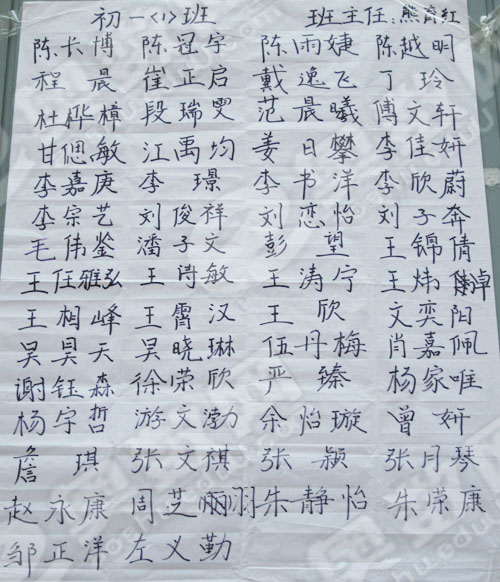 初一<1>班 班主任:熊育红
陈卡博 陈冠宇 陈雨婕 陈越明
程晨 崔正启 戴逸飞 丁玲
杜桦樟 段瑞雯 范晨曦 傅文轩
甘偲敏 江禹均 姜日攀 李佳妍
李嘉庚 李璟 李书洋 李欣蔚
李宗艺 刘俊祥 刘恋怡 刘子奔
毛伟鉴 潘子文 彭望 王锦倩
王任雅弘 王诗敏 王涛宁 王炜
王相峰 王霄汉 王欣 文奕阳
吴昊天 吴晓琳 伍丹梅 肖嘉佩
谢钰森 徐荣欣 严臻 杨家唯
杨宇哲 游文渤 余怡璇 曾妍
詹琪 张文祺 张颖 张月琴
赵永康 周芝丽羽 朱静怡 朱荣康
邹正洋 左义勤